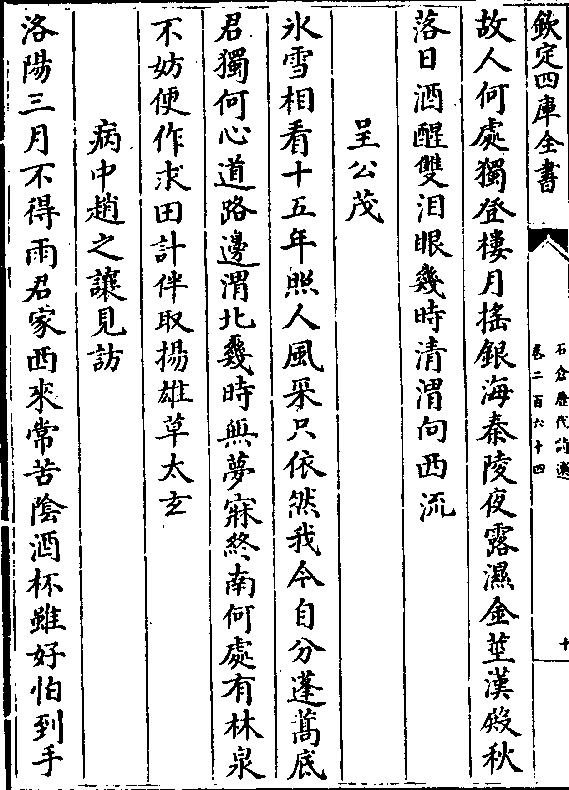 欽定四庫全書
石倉歷代詩選
卷二百六十四
十
故人何處獨登樓月揺銀海秦陵夜露濕金莖漢殿秋
落日酒醒雙泪眼幾時清渭向西流
呈公茂
氷雪相看十五年照人風采只依然我今自分蓬蒿底
君獨何心道路邊渭北幾時無夢寐終南何處有林泉
不妨便作求田計伴取揚雄草太玄
病中趙之讓見訪
洛陽三月不得雨君家西來常苦陰酒杯雖好怕到手